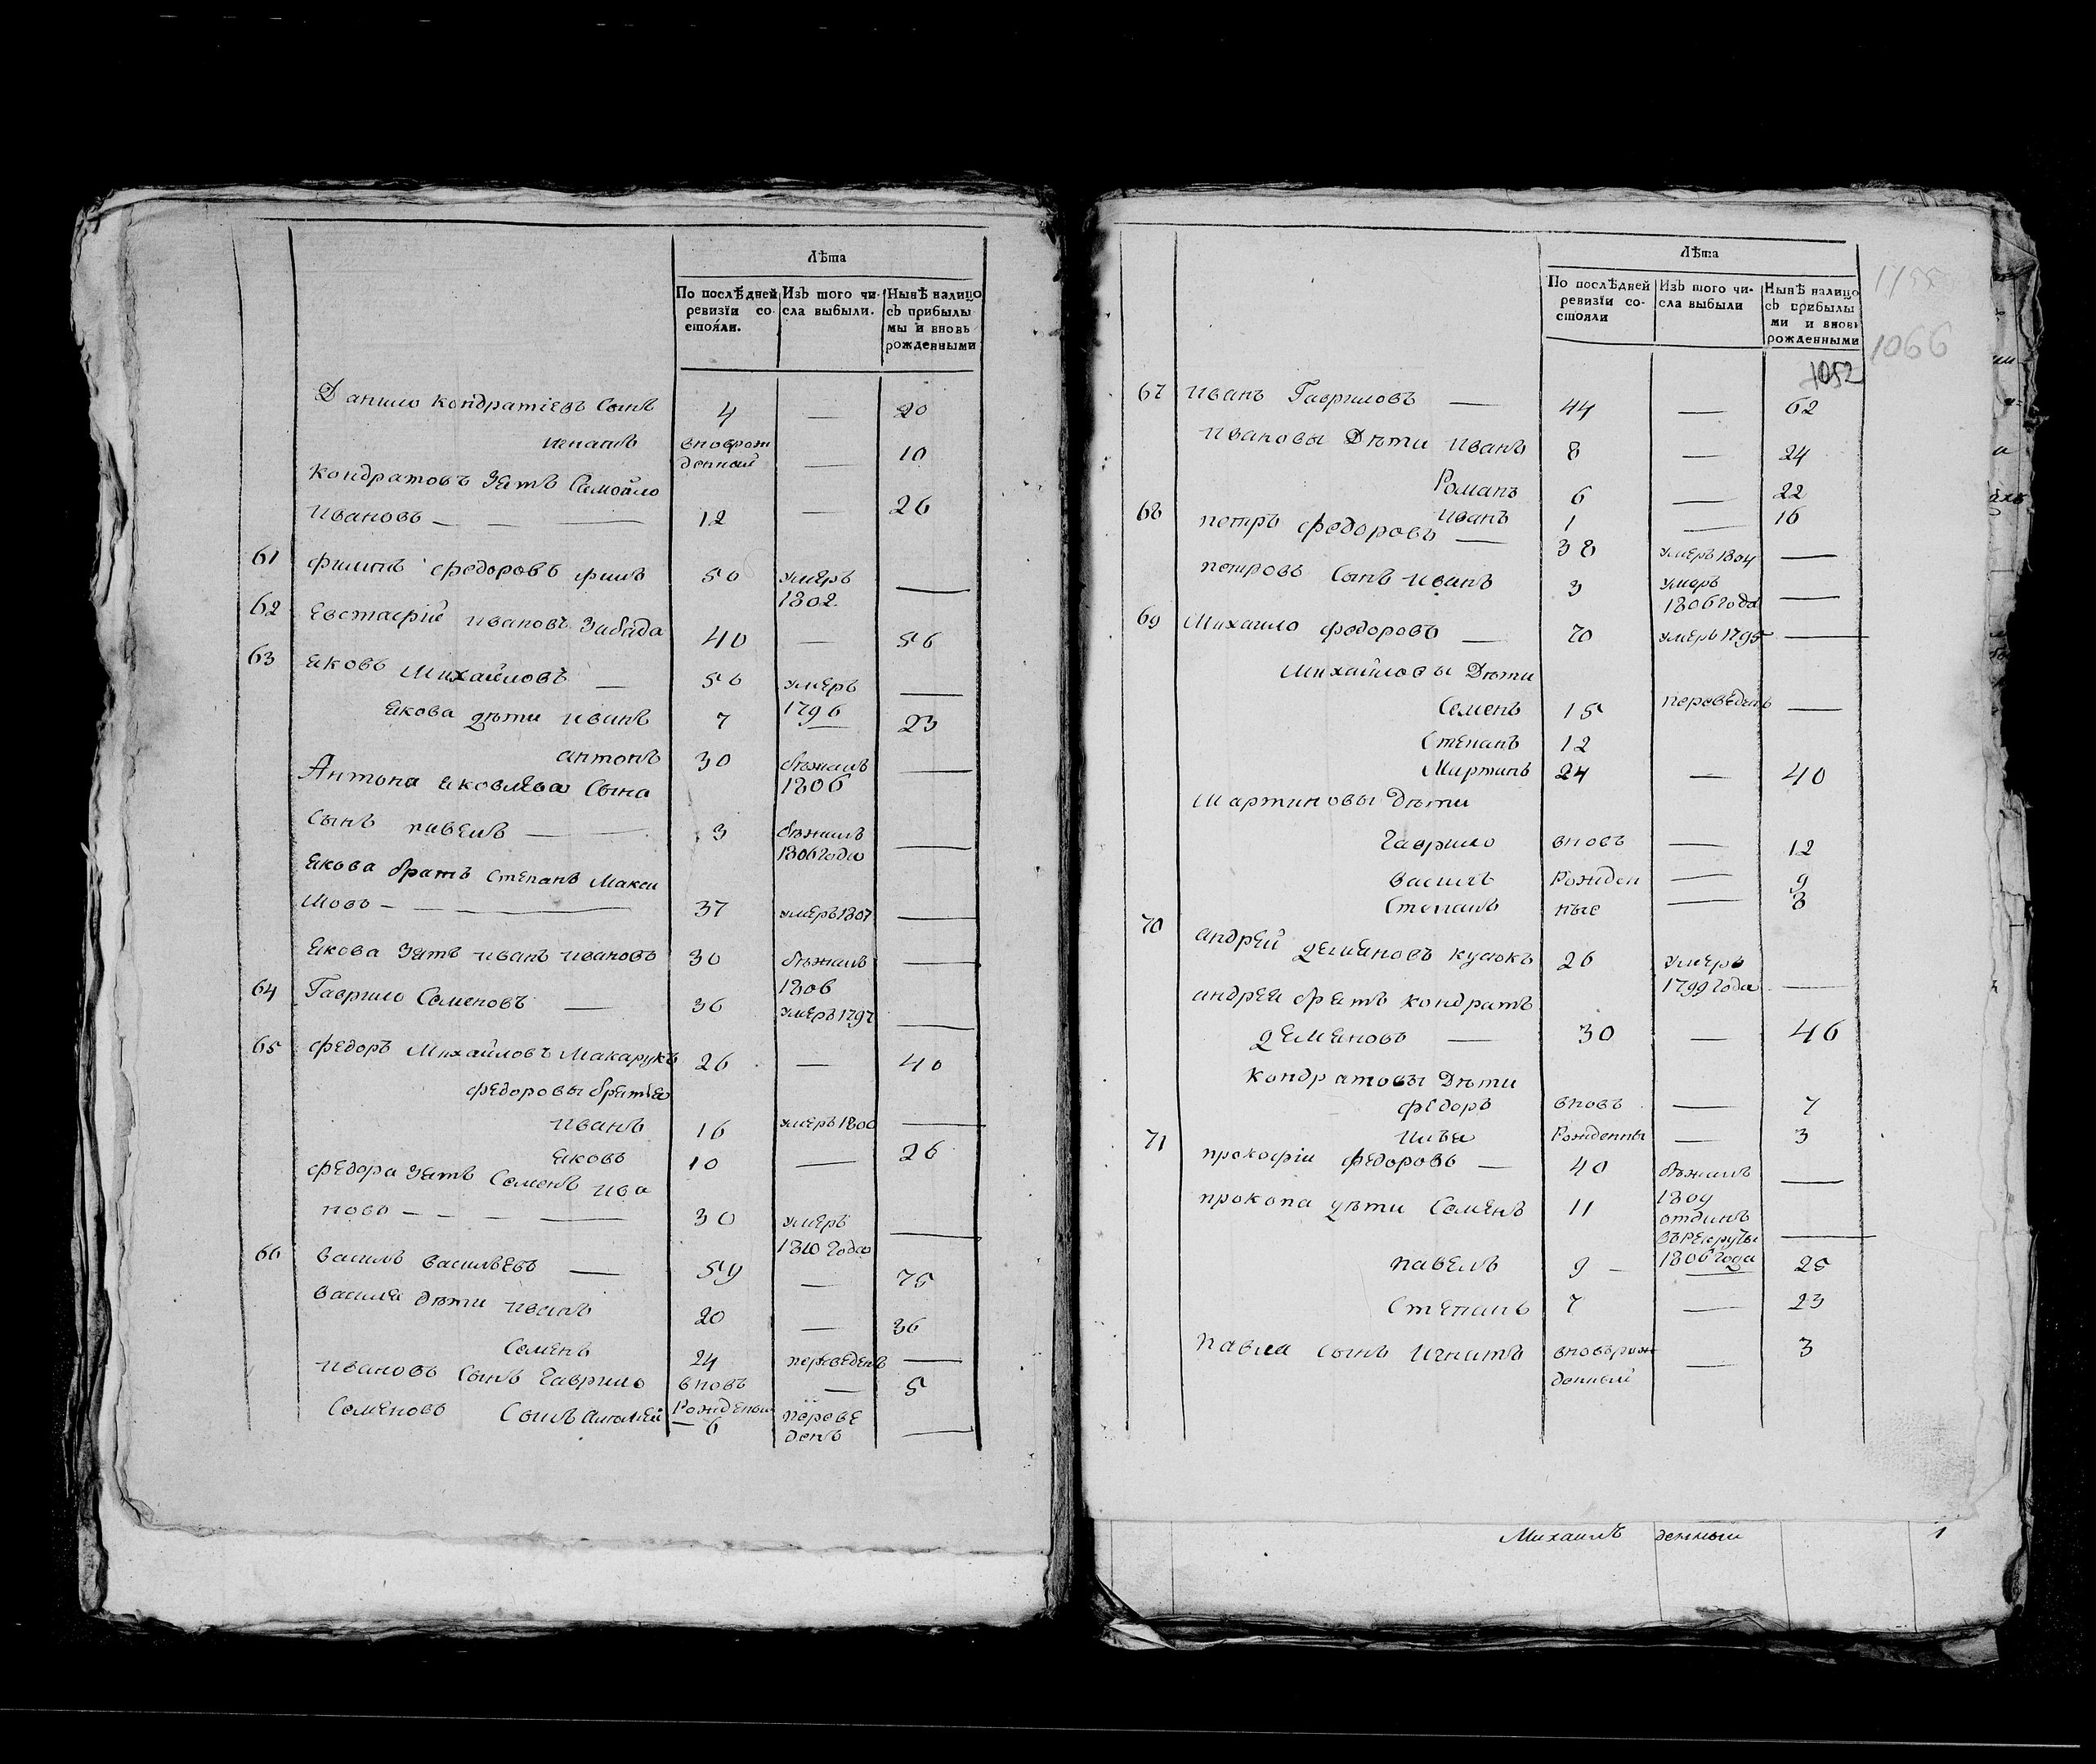 Лѣта
По послѣдней ревизїи состоя́ли.
Изъ того числа выбыли.
Нынѣ налицо съ прибылымы и вновь рожденными
Данило Кондратіевъ Сынъ 4 — 20
игнатъ вновьрожденный — 10
Кондратовъ Зять Самойло
Ивановъ — — — 12 — 26
61 филипъ федоровъ 50 умеръ 1802. —
62 Евстафій Ивановъ 40 — 56
63 Яковъ Михайловъ — 50 умеръ 1796 —
Якова дѣти Иванъ 7 — 23
антонъ 30 бѣжалъ 1806 —
Антона Яковлева Сына
Сынъ павелъ — — 3 бѣжалъ 1806 года —
Якова братъ Степанъ Макси
мовъ — — — 37 умеръ 1807 —
Якова Зять Иванъ Ивановъ 30 бѣжалъ 1806 —
64 Гаврило Семеновъ — 36 умеръ 1797 —
65 федоръ Михайловъ Макарукъ 26 — 40
федоровы братья
Иванъ 16 умеръ 1800 —
Яковъ 10 — 26
федора Зять Семенъ Ива
новъ — — — 30 умеръ 1810 года —
66 Василь Васильевъ — 59 — 75
Василя дѣти Иванъ 20 — 36
Семенъ 24 переведенъ —
Ивановъ Сынъ Гаврило вновь Рожденый — 5
Семеновъ Сынъ — 6 переведенъ —
Лѣта
По послѣдней ревизїи состояли
Изъ того числа выбыли
Нынѣ налицо съ прибылыми и вновь рожденными
1066
1052
67 Иванъ Гавриловъ — 44 — 62
Ивановы Дѣти Иванъ 8 — 24
Романъ 6 — 22
Иванъ 1 — 16
68 петръ федоровъ — 38 умеръ 1804 —
петровъ Сынъ Иванъ 3 умеръ 1806 года —
69 Михайло федоровъ — 70 умеръ 1795 —
Михайловы Дѣти
Семенъ 15 переведенъ —
Степанъ 12
Мартинъ 24 — 40
Мартиновы Дѣти
Гаврило вновь — 12
Василь Рожден — 9
Степанъ ные — 8
70 андрей демяновъ кусюкъ 26 умеръ 1799 года —
андрея братъ кондратъ
демяновъ — 30 — 46
Кондратовы Дѣти
федоръ вновь — 7
Илья Рожденны — 3
71 прокофіи федоровъ — 40 бѣжалъ 1809 —
прокопа дѣти Семенъ 11 отданъ въ рекруты 1806 года —
павелъ 9 — — 25
Степанъ 7 — 23
павла сынъ Игнатъ вновьрожденный — 3
Михаилъ денный 1